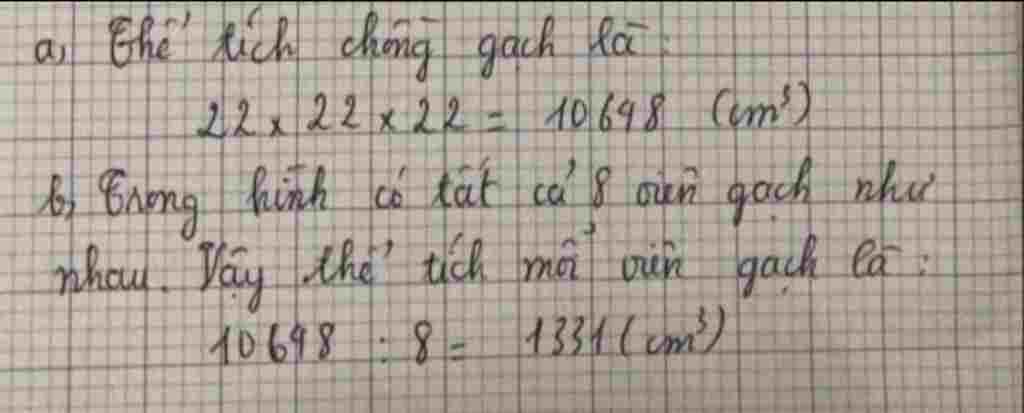 a, Thể tích chồng gạch là:
22 x 22 x 22 = 10648 (cm³)
b, Trong hình có tất cả 8 viên gạch như
nhau. Vậy thể tích mỗi viên gạch là:
10648 : 8 = 1331 (cm³)